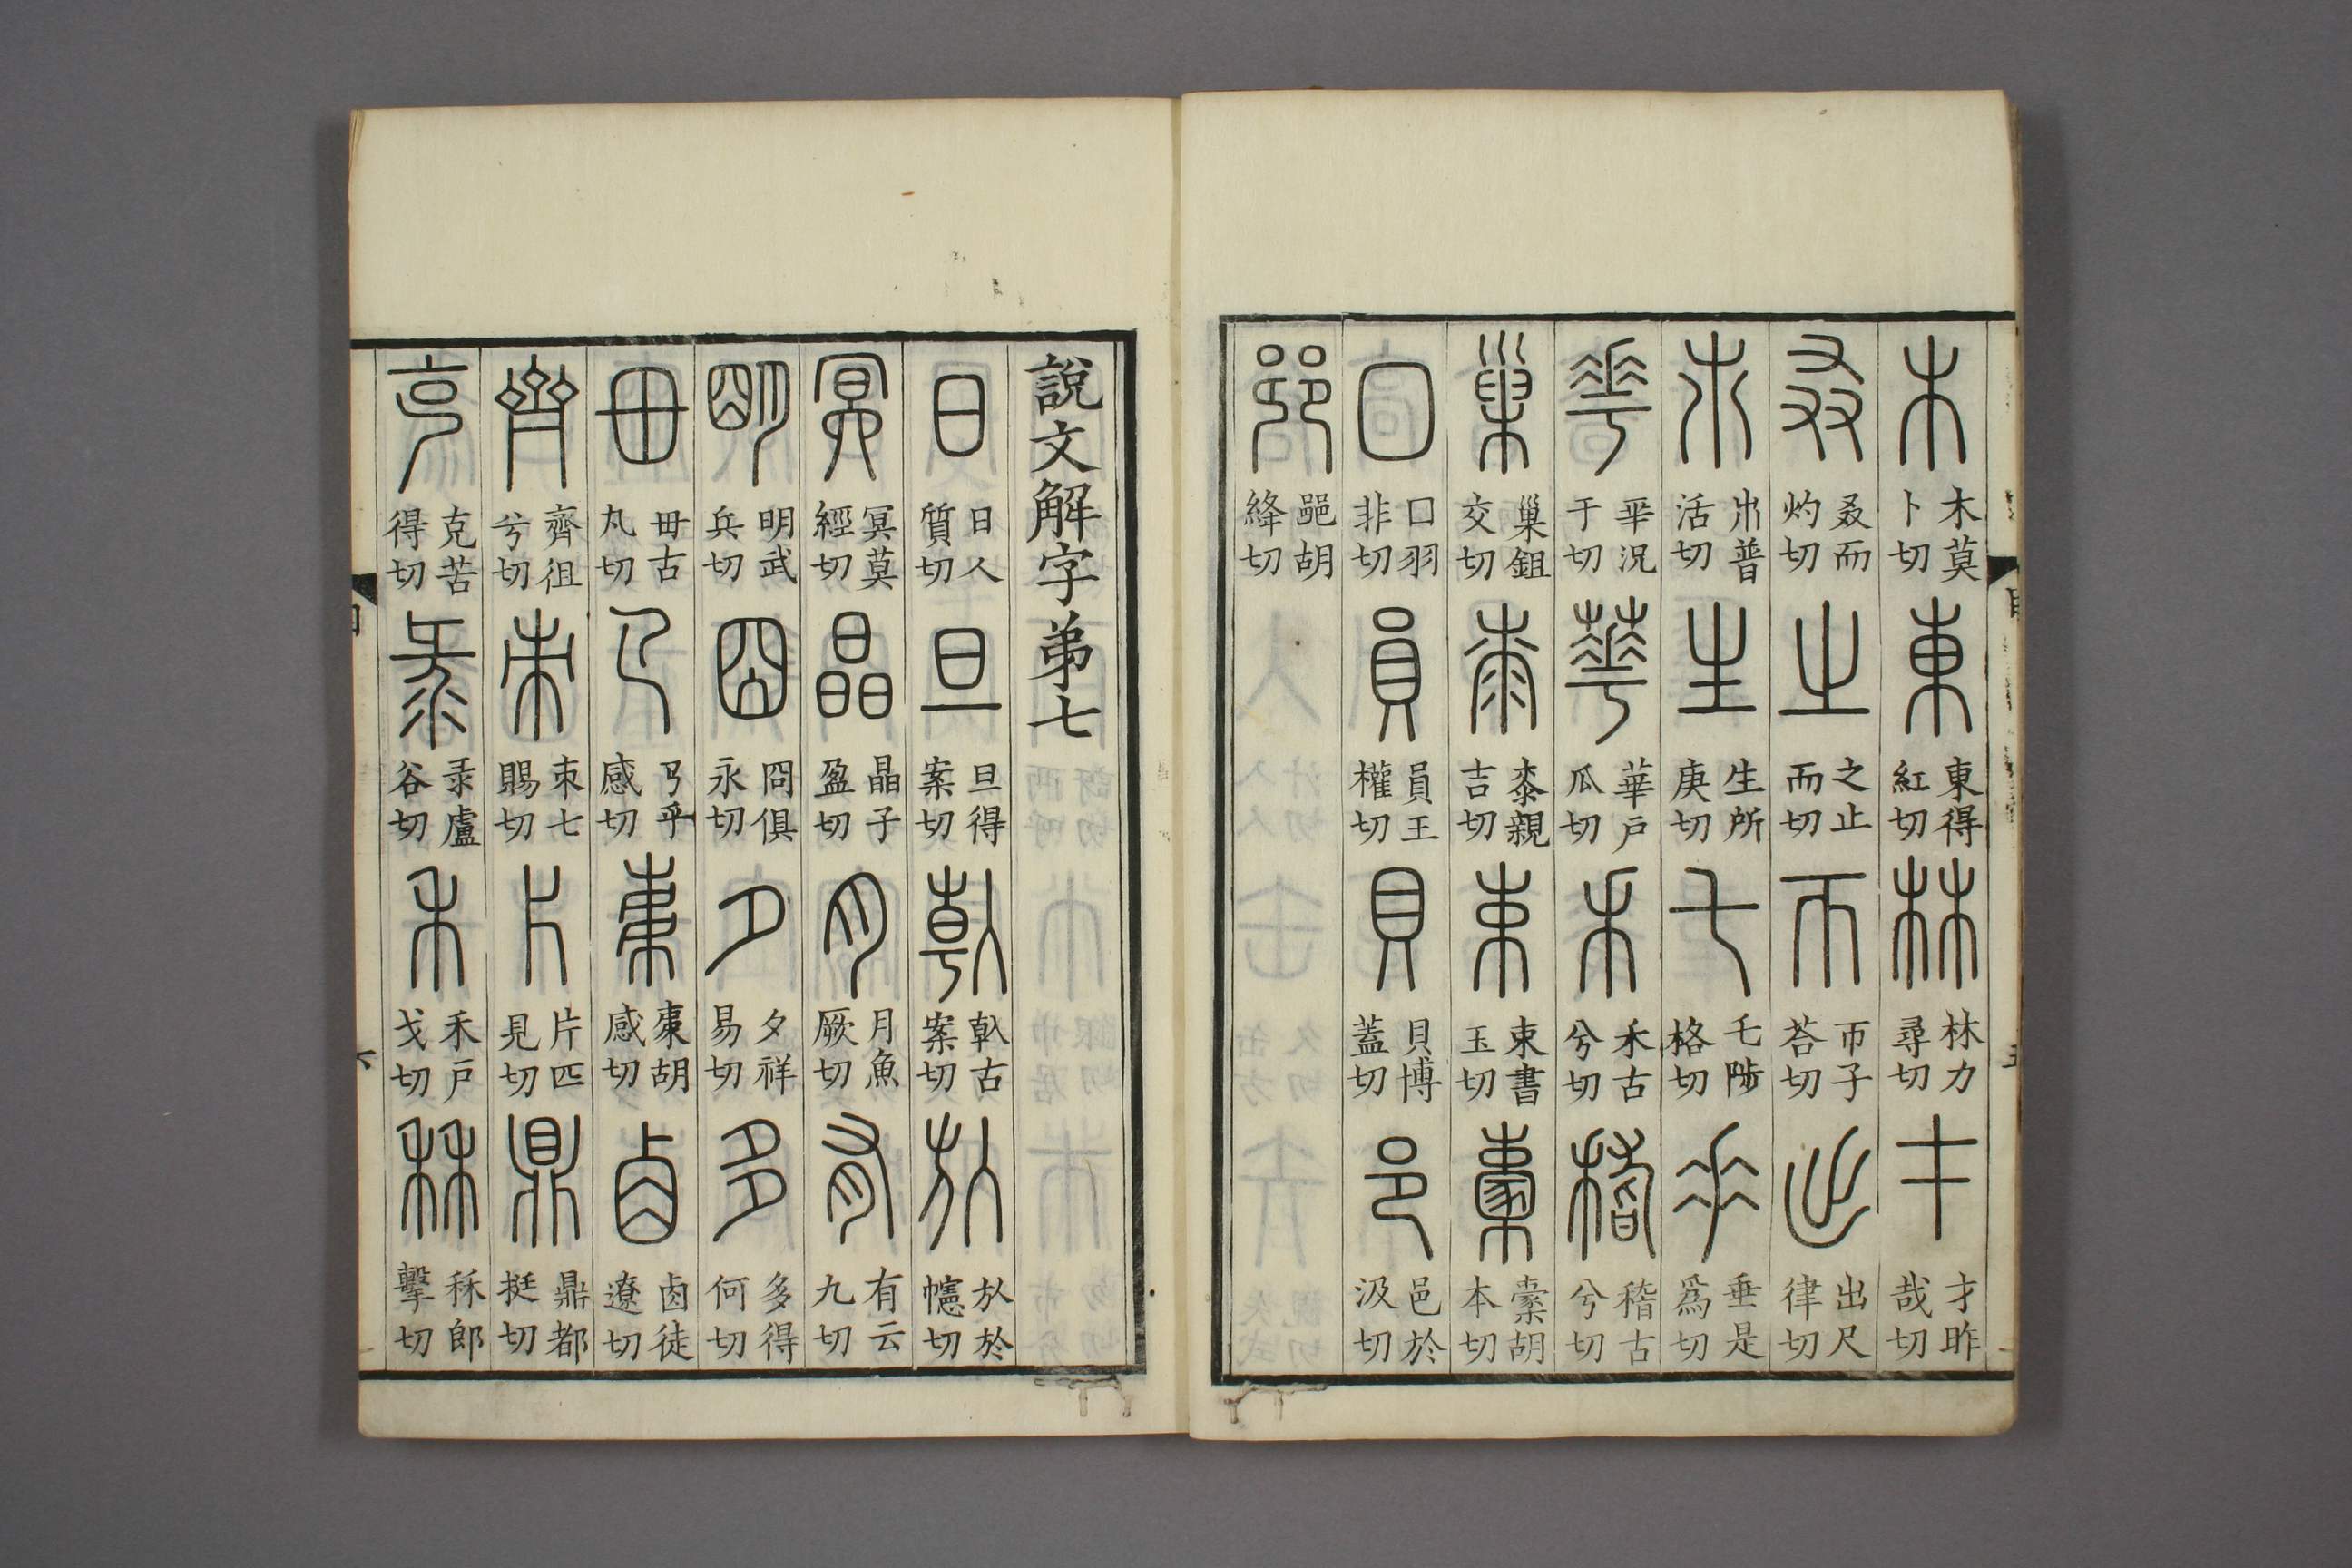 木木莫卜切東東得紅切林林力尋切才才昨哉切
叒叒而灼切之之止而切帀帀子荅切出出尺律切
𣎵𣎵普活切生生所庚切乇乇陟格切𠂹垂是爲切
𠌶𠌶況于切華華戶瓜切𥝌𥝌古兮切稽稽古兮切
巢巢鉏交切桼桼親吉切束束書玉切㯻㯻胡本切
囗囗羽非切員員王權切貝貝博蓋切邑邑於汲切
𨛜𨛜胡絳切
說文解字弟七
日日人質切旦旦得案切倝倝古案切㫃㫃於幰切
冥冥莫經切晶晶子盈切月月魚厥切有有云九切
明明武兵切囧囧俱永切夕夕祥易切多多得何切
毌毌古丸切𢎘𢎘乎感切𣐺𣐺胡感切𠧪𠧪徒遼切
齊齊徂兮切朿朿七賜切片片匹見切鼎鼎都挺切
克克苦得切彔彔盧谷切禾禾戶戈切秝秝郎擊切